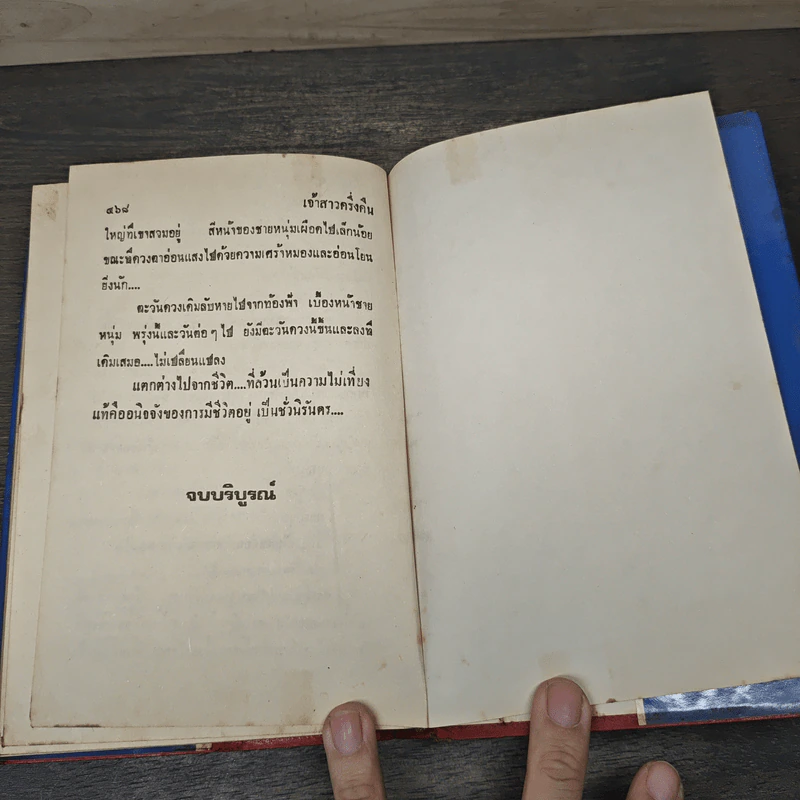 ๔๖๘ เจ้าสาวครึ่งคืน
ใหญ่ที่เขาสวมอยู่ สีหน้าของชายหนุ่มเผือดไปเล็กน้อย
ขณะที่ดวงตาอ่อนแสงไปด้วยความเศร้าหมองและอ่อนโยน
ยิ่งนัก....
ตะวันดวงเดิมลับหายไปจากท้องฟ้า เบื้องหน้าชาย
หนุ่ม พรุ่งนี้และวันต่อๆ ไป ยังมีตะวันดวงนี้ขึ้นและลงที่
เดิมเสมอ....ไม่เปลี่ยนแปลง
แตกต่างไปจากชีวิต....ที่ล้วนเป็นความไม่เที่ยง
แท้คืออนิจจังของการมีชีวิตอยู่ เป็นชั่วนิรันดร....
จบบริบูรณ์